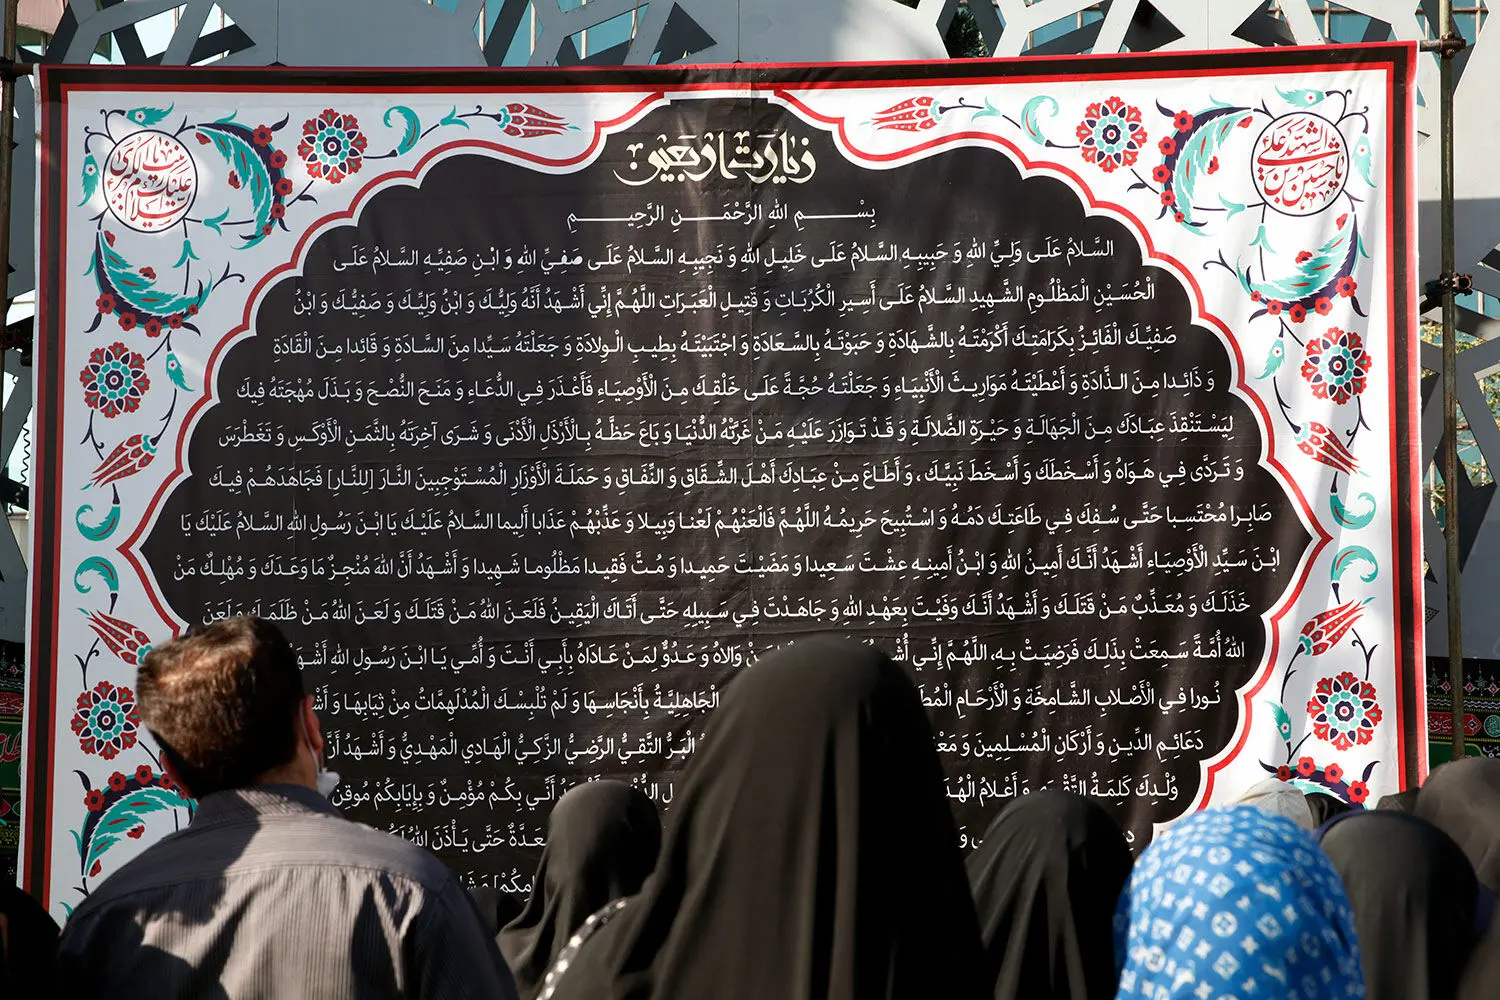 زیارت اربعین
بِسْمِ اللهِ الرَّحْمَنِ الرَّحِيمِ
السَّلامُ عَلَى وَلِيِّ اللهِ وَ حَبِيبِهِ السَّلامُ عَلَى خَلِيلِ اللهِ وَ نَجِيبِهِ السَّلامُ عَلَى صَفِيِّ اللهِ وَ ابْنِ صَفِيِّهِ السَّلامُ عَلَى
الْحُسَيْنِ الْمَظْلُومِ الشَّهِيدِ السَّلامُ عَلَى أَسِيرِ الْكُرُبَاتِ وَ قَتِيلِ الْعَبَرَاتِ اللَّهُمَّ إِنِّي أَشْهَدُ أَنَّهُ وَلِيُّكَ وَ ابْنُ وَلِيِّكَ وَ صَفِيُّكَ وَ ابْنُ
صَفِيِّكَ الْفَائِزُ بِكَرَامَتِكَ أَكْرَمْتَهُ بِالشَّهَادَةِ وَ حَبَوْتَهُ بِالسَّعَادَةِ وَ اجْتَبَيْتَهُ بِطِيبِ الْوِلادَةِ وَ جَعَلْتَهُ سَيِّدا مِنَ السَّادَةِ وَ قَائِدا مِنَ الْقَادَةِ
وَ ذَائِدا مِنَ الذَّادَةِ وَ أَعْطَيْتَهُ مَوَارِيثَ الْأَنْبِيَاءِ وَ جَعَلْتَهُ حُجَّةً عَلَى خَلْقِكَ مِنَ الْأَوْصِيَاءِ فَأَعْذَرَ فِي الدُّعَاءِ وَ مَنَحَ النُّصْحَ وَ بَذَلَ مُهْجَتَهُ فِيكَ
لِيَسْتَنْقِذَ عِبَادَكَ مِنَ الْجَهَالَةِ وَ حَيْرَةِ الضَّلالَةِ وَ قَدْ تَوَازَرَ عَلَيْهِ مَنْ غَرَّتْهُ الدُّنْيَا وَ بَاعَ حَظَّهُ بِالْأَرْذَلِ الْأَدْنَى وَ شَرَى آخِرَتَهُ بِالثَّمَنِ الْأَوْكَسِ وَ تَغَطْرَسَ
وَ تَرَدَّى فِي هَوَاهُ وَ أَسْخَطَكَ وَ أَسْخَطَ نَبِيَّكَ ، وَ أَطَاعَ مِنْ عِبَادِكَ أَهْلَ الشِّقَاقِ وَ النِّفَاقِ وَ حَمَلَةَ الْأَوْزَارِ الْمُسْتَوْجِبِينَ النَّارَ [لِلنَّارِ] فَجَاهَدَهُمْ فِيكَ
صَابِرا مُحْتَسِبا حَتَّى سُفِكَ فِي طَاعَتِكَ دَمُهُ وَ اسْتُبِيحَ حَرِيمُهُ اللَّهُمَّ فَالْعَنْهُمْ لَعْنا وَبِيلا وَ عَذِّبْهُمْ عَذَابا أَلِيما السَّلامُ عَلَيْكَ يَا ابْنَ رَسُولِ اللهِ السَّلامُ عَلَيْكَ يَا
ابْنَ سَيِّدِ الْأَوْصِيَاءِ أَشْهَدُ أَنَّكَ أَمِينُ اللهِ وَ ابْنُ أَمِينِهِ عِشْتَ سَعِيدا وَ مَضَيْتَ حَمِيدا وَ مُتَّ فَقِيدا مَظْلُوما شَهِيدا وَ أَشْهَدُ أَنَّ اللهَ مُنْجِزٌ مَا وَعَدَكَ وَ مُهْلِكٌ مَنْ
خَذَلَكَ وَ مُعَذِّبٌ مَنْ قَتَلَكَ وَ أَشْهَدُ أَنَّكَ وَفَيْتَ بِعَهْدِ اللهِ وَ جَاهَدْتَ فِي سَبِيلِهِ حَتَّى أَتَاكَ الْيَقِينُ فَلَعَنَ اللهُ مَنْ قَتَلَكَ وَ لَعَنَ اللهُ مَنْ ظَلَمَكَ وَ لَعَنَ
اللهُ أُمَّةً سَمِعَتْ بِذَلِكَ فَرَضِيَتْ بِهِ، اللَّهُمَّ إِنِّي وَالاهُ وَ عَدُوٌّ لِمَنْ عَادَاهُ بِأَبِي أَنْتَ وَ أُمِّي يَا ابْنَ رَسُولِ اللهِ
نُورا فِي الْأَصْلابِ الشَّامِخَةِ وَ الْأَرْحَامِ الْجَاهِلِيَّةُ بِأَنْجَاسِهَا وَ لَمْ تُلْبِسْكَ الْمُدْلَهِمَّاتُ مِنْ ثِيَابِهَا وَ
دَعَائِمِ الدِّينِ وَ أَرْكَانِ الْمُسْلِمِينَ وَ الْبَرُّ التَّقِيُّ الرَّضِيُّ الزَّكِيُّ الْهَادِي الْمَهْدِيُّ وَ أَشْهَدُ أَنَّ
وُلْدِكَ كَلِمَةُ التَّقْوَى وَ أَعْلامُ أَنِّي بِكُمْ مُؤْمِنٌ وَ بِإِيَابِكُمْ
حَتَّى يَأْذَنَ اللهُ